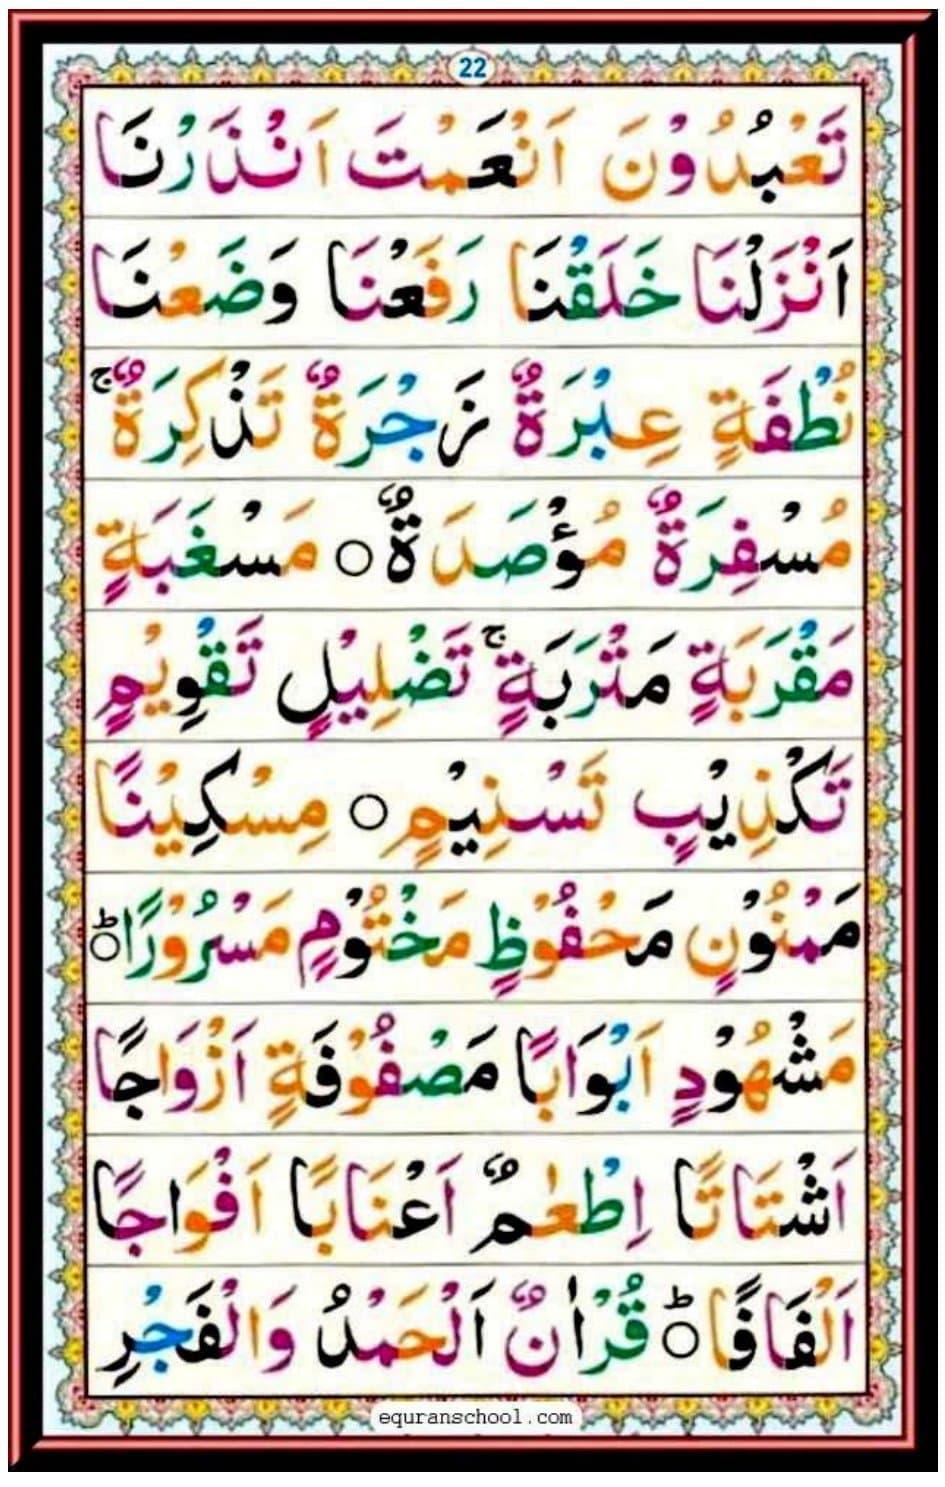 22
تَعْبُدُوْنَ اَنْعَمْتَ اَنْذَرْنَا
اَنْزَلْنَا خَلَقْنَا رَفَعْنَا وَضَعْنَا
نُطْفَةٍ عِبْرَةٌ زَجْرَةٌ تَذْكِرَةٌ ۚ
مُسْفِرَةٌ مُؤْصَدَةٌ ○ مَسْغَبَةٍ
مَقْرَبَةٍ مَتْرَبَةٍ ۚ تَضْلِيْلٍ تَقْوِيْمٍ
تَكْذِيْبٍ تَسْنِيْمٍ ○ مِسْكِيْنًا
مَمْنُوْنٍ مَحْفُوْظٍ مَخْتُوْمٍ مَسْرُوْرًا ○ؕ
مَشْهُوْدٍ اَبْوَابًا مَصْفُوْفَةٍ اَزْوَاجًا
اَشْتَاتًا اِطْعٰمٌ اَعْنَابًا اَفْوَاجًا
اَلْفَافًا ○ؕ قُرْاٰنٌ اَلْحَمْدُ وَالْفَجْرِ
equranschool.com